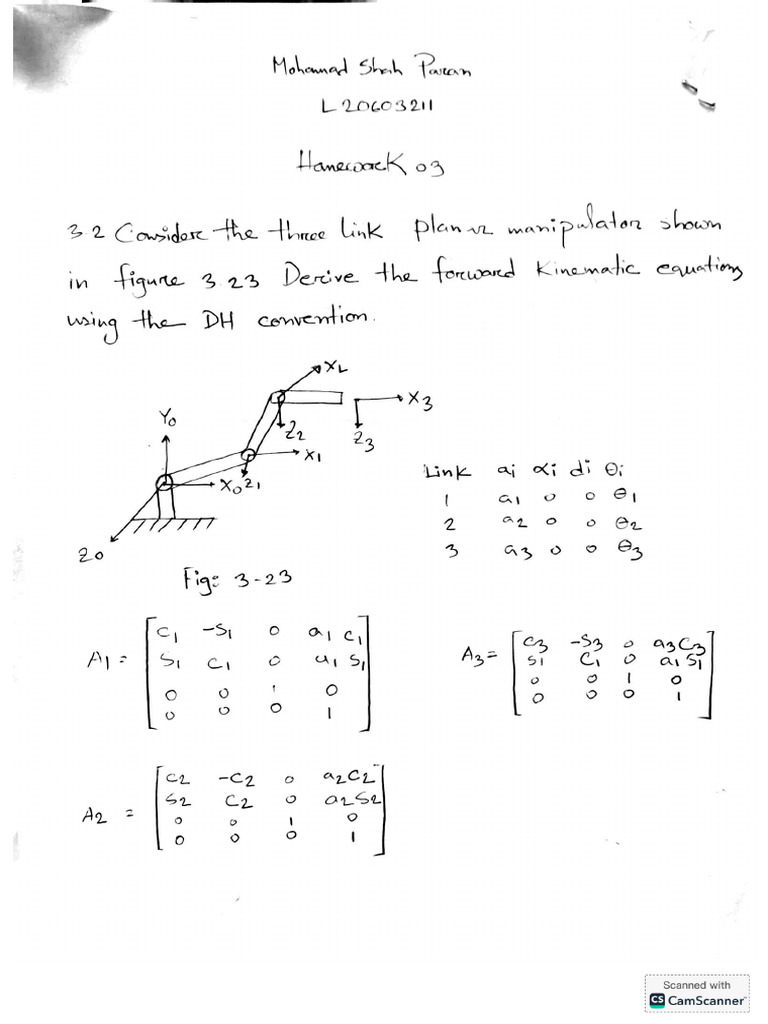 Mohammad Shah Paran
L20603211
Homework 03
3.2 Consider the three link planar manipulator shown
in figure 3.23 Derive the forward Kinematic equations
using the DH convention.
X2
X3
Y0
Z2
Z3
X1
X0 Z1
Z0
Link ai αi di θi
1 a1 0 0 θ1
2 a2 0 0 θ2
3 a3 0 0 θ3
Fig: 3-23
A1 =
C1 -S1 0 a1 C1
S1 C1 0 a1 S1
0 0 1 0
0 0 0 1
A3 =
C3 -S3 0 a3C3
S1 C1 0 a1 S1
0 0 1 0
0 0 0 1
A2 =
C2 -C2 0 a2C2
S2 C2 0 a2S2
0 0 1 0
0 0 0 1
Scanned with
CS CamScanner